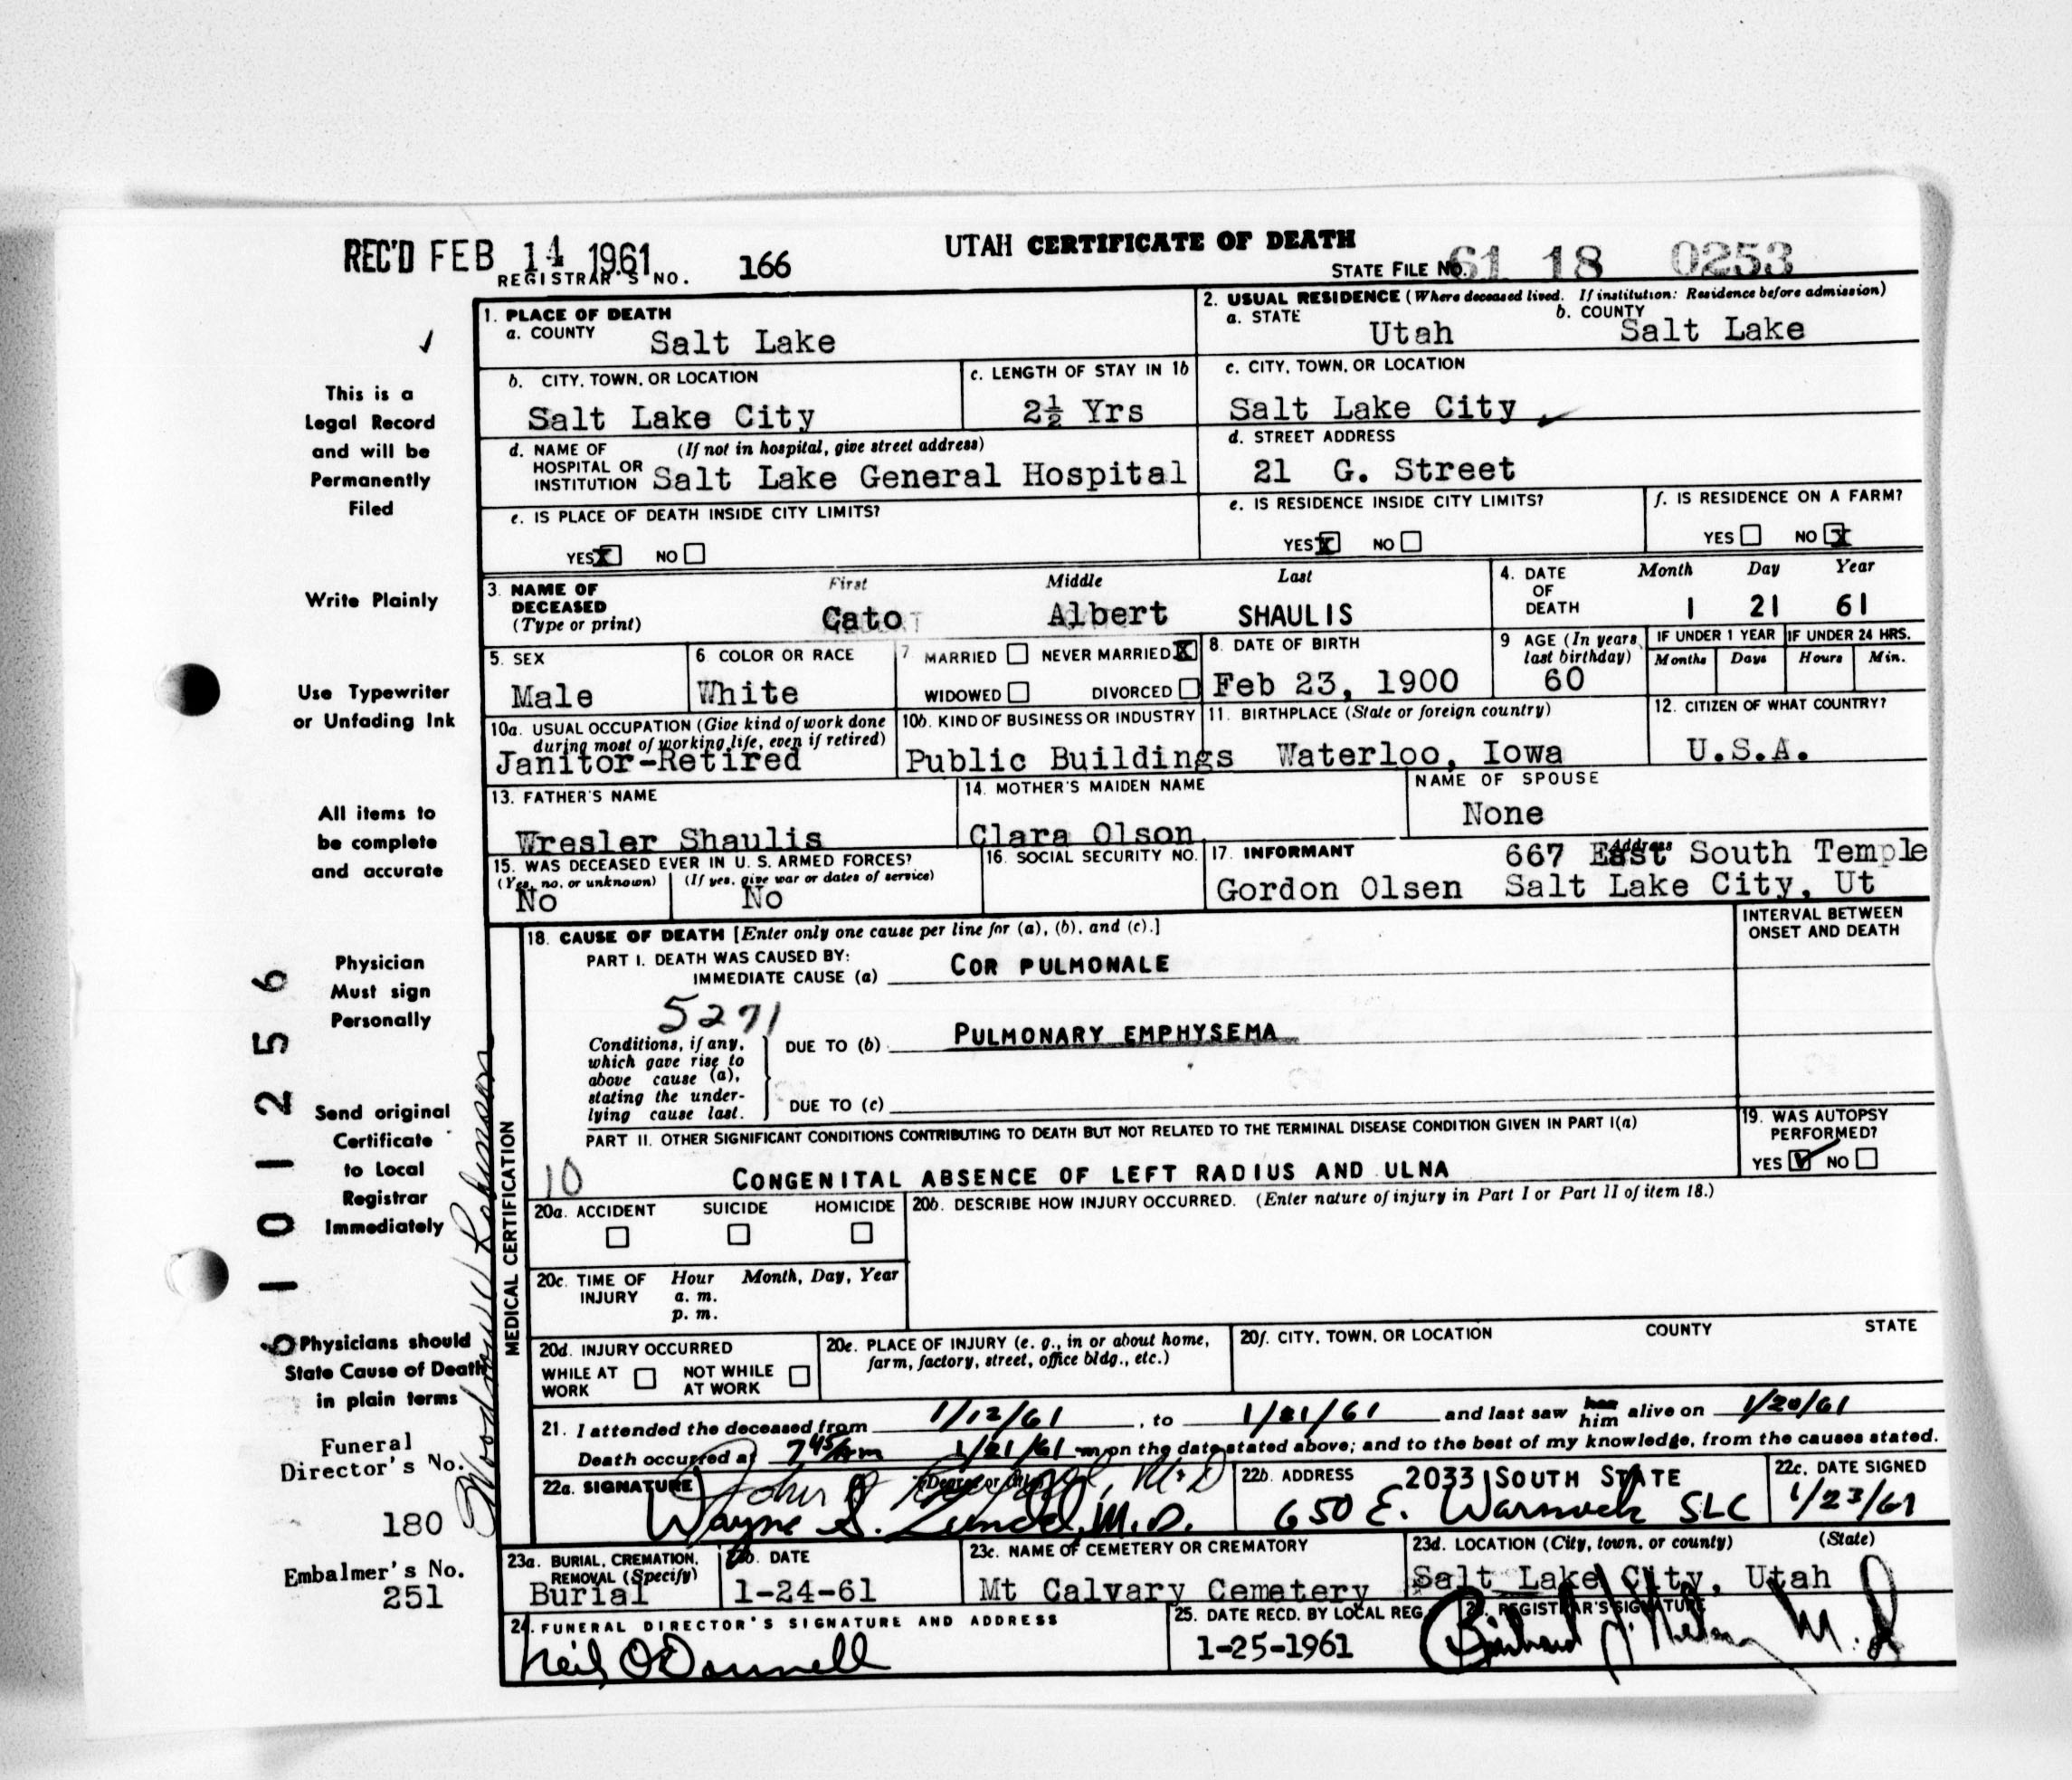 REC'D FEB 14 1961
REGISTRAR'S NO. 166
UTAH CERTIFICATE OF DEATH
STATE FILE NO. 61 18 0253
This is a
Legal Record
and will be
Permanently
Filed
Write Plainly
Use Typewriter
or Unfading Ink
All items to
be complete
and accurate
Physician
Must sign
Personally
Send original
Certificate
to Local
Registrar
Immediately
Physicians should
State Cause of Death
in plain terms
Funeral
Director's No.
180
Embalmer's No.
251
6 1 0 1 2 5 6
1. PLACE OF DEATH
a. COUNTY Salt Lake
2. USUAL RESIDENCE (Where deceased lived. If institution: Residence before admission)
a. STATE Utah b. COUNTY Salt Lake
b. CITY, TOWN, OR LOCATION Salt Lake City
c. LENGTH OF STAY IN 1b 2½ Yrs
c. CITY, TOWN, OR LOCATION Salt Lake City
d. NAME OF HOSPITAL OR INSTITUTION (If not in hospital, give street address) Salt Lake General Hospital
d. STREET ADDRESS 21 G. Street
e. IS PLACE OF DEATH INSIDE CITY LIMITS?
YES X NO
e. IS RESIDENCE INSIDE CITY LIMITS?
YES X NO
f. IS RESIDENCE ON A FARM?
YES NO X
3. NAME OF DECEASED (Type or print)
First Middle Last
Cato Albert SHAULIS
4. DATE OF DEATH Month Day Year
1 21 61
5. SEX Male
6. COLOR OR RACE White
7. MARRIED NEVER MARRIED X
WIDOWED DIVORCED
8. DATE OF BIRTH Feb 23, 1900
9 AGE (In years last birthday) 60
IF UNDER 1 YEAR Months Days
IF UNDER 24 HRS. Hours Min.
10a. USUAL OCCUPATION (Give kind of work done during most of working life, even if retired)
Janitor-Retired
10b. KIND OF BUSINESS OR INDUSTRY
Public Buildings
11. BIRTHPLACE (State or foreign country)
Waterloo, Iowa
12. CITIZEN OF WHAT COUNTRY?
U.S.A.
13. FATHER'S NAME
Wresler Shaulis
14. MOTHER'S MAIDEN NAME
Clara Olson
NAME OF SPOUSE
None
15. WAS DECEASED EVER IN U. S. ARMED FORCES?
(Yes, no, or unknown) (If yes, give war or dates of service)
No No
16. SOCIAL SECURITY NO.
17. INFORMANT Address
667 East South Temple
Gordon Olsen Salt Lake City, Ut
MEDICAL CERTIFICATION
18. CAUSE OF DEATH [Enter only one cause per line for (a), (b), and (c).]
INTERVAL BETWEEN ONSET AND DEATH
PART I. DEATH WAS CAUSED BY:
IMMEDIATE CAUSE (a) COR PULMONALE
5271
Conditions, if any, which gave rise to above cause (a), stating the underlying cause last.
DUE TO (b) PULMONARY EMPHYSEMA
DUE TO (c)
PART II. OTHER SIGNIFICANT CONDITIONS CONTRIBUTING TO DEATH BUT NOT RELATED TO THE TERMINAL DISEASE CONDITION GIVEN IN PART I(a)
10 CONGENITAL ABSENCE OF LEFT RADIUS AND ULNA
19. WAS AUTOPSY PERFORMED?
YES NO
20a. ACCIDENT SUICIDE HOMICIDE
20b. DESCRIBE HOW INJURY OCCURRED. (Enter nature of injury in Part I or Part II of item 18.)
20c. TIME OF INJURY Hour Month, Day, Year
a. m.
p. m.
20d. INJURY OCCURRED
WHILE AT WORK NOT WHILE AT WORK
20e. PLACE OF INJURY (e. g., in or about home, farm, factory, street, office bldg., etc.)
20f. CITY, TOWN, OR LOCATION COUNTY STATE
21. I attended the deceased from 1/12/61, to 1/21/61 and last saw him alive on 1/20/61
Death occurred at 7 45 Am 1/21/61 m on the date stated above; and to the best of my knowledge, from the causes stated.
22a. SIGNATURE (Degree or title)
John M.D
Wayne S. M.D.
22b. ADDRESS 2033 SOUTH STATE
650 E. Warnock SLC
22c. DATE SIGNED
1/23/61
23a. BURIAL, CREMATION, REMOVAL (Specify)
Burial
23b. DATE
1-24-61
23c. NAME OF CEMETERY OR CREMATORY
Mt Calvary Cemetery
23d. LOCATION (City, town, or county) (State)
Salt Lake City, Utah
24. FUNERAL DIRECTOR'S SIGNATURE AND ADDRESS
Neil O'Donnell
25. DATE RECD. BY LOCAL REG.
1-25-1961
26. REGISTRAR'S SIGNATURE
M. D